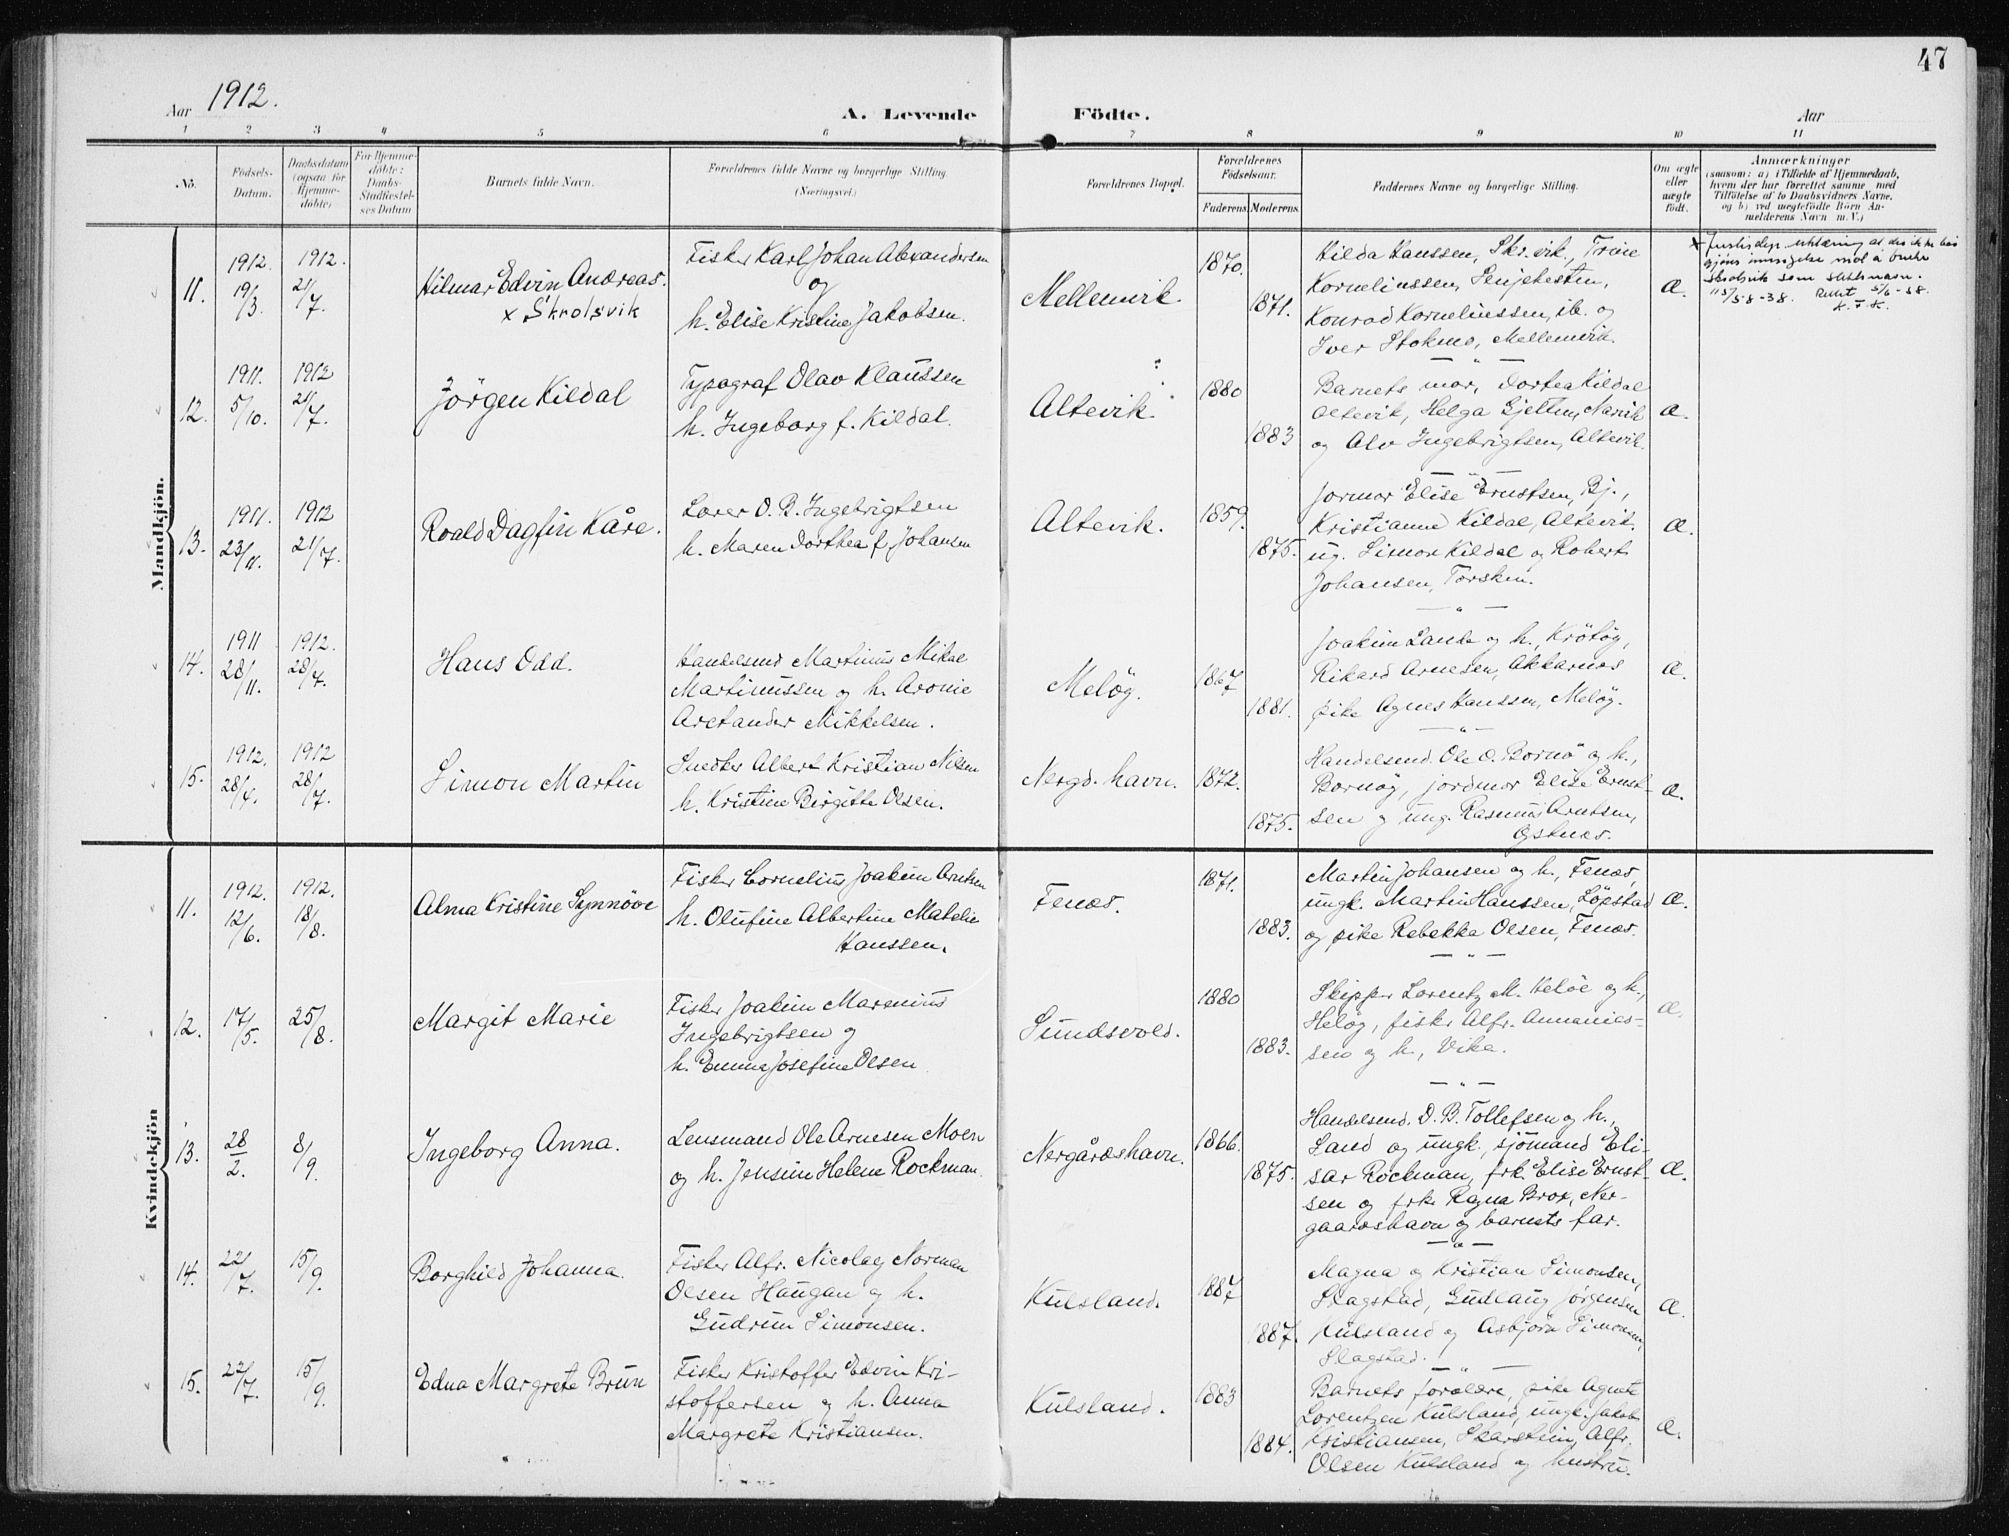 47
Aar 1912.
A. Levende Födte.
Aar
1 2 3 4 5 6 7 8 9 10 11
No.
Födsels-Datum.
Daabsdatum (ogsaa for Hjemmedöbte)
For Hjemmedöbte: Daabs-Stadfæstelses Datum
Barnets fulde Navn.
Forældrenes fulde Navne og borgerlige Stilling. (Næringsvei.)
Forældrenes Bopæl.
Forældrenes Födselsaar.
Faderens. Moderens.
Faddernes Navne og borgerlige Stilling.
Om ægte eller uægte födt.
Anmærkninger
(saasom: a) i Tilfælde af Hjemmedaab,
hvem der har forrettet samme med
Tilföielse af to Daabsvidners Navne,
og b) ved uægtefödte Börn Anmelderens Navn m. V.)
Mandkjön.
11. 1912. 19/3. 1912. 21/7.
Hilmar Edvin Andreas.
x Skrolsvik
Fisker Karl Johan Alexandersen
og
h. Elise Kristine Jakobsen.
Mellemvik.
1870. 1871.
Hilda Hanssen, Skr.vik, Trine
Korneliussen, Senjehesten,
Konrad Korneliussen, ib. og
Iver Stokmo, Mellemvik.
Æ.
x Justisdep. at det ikke har
mot å bruke
Skrolsvik som slektsnavn.
K. F. K.
12. 1911. 5/10. 1912 21/7.
Jörgen Kildal
Typograf Olav Klaussen
h. Ingeborg f. Kildal.
Altevik.
1880 1883
Barnets mor, Dortea Kildal
Altevik, Helga Gjeltun, Narvik
og Alv Ingebrigtsen, Altevik.
Æ.
13. 1911. 23/11. 1912 21/7.
Roald Dagfin Kåre.
Lærer O. B. Ingebrigtsen
h. Maren Dorthea f. Johansen
Altevik.
1859. 1875.
Jormor Elise Ernstsen, Bj.,
Kristianne Kildal, Altevik.
ug. Simon Kildal og Robert
Johansen, Torsken.
Æ.
14. 1911 28/11. 1912. 28/7.
Hans Odd.
Handelsmd Martinus Mikal
Martinussen og h. Aronie
Aretander Mikkelsen.
Meløy.
1867 1881.
Joakim Lande og h., Krötöy,
Rikard Arnesen, Akkarnes
pike Agnes Hanssen, Meløy.
Æ.
15. 1912. 28/4. 1912 28/7.
Simon Martin
Snedker Albert Kristian Nilsen
h. Kristine Birgitte Olsen.
Nergd. havn.
1872. 1875.
Handelsmd. Ole O. Bornö og h.,
Bornöy, jordmor Elise Ernst-
sen og ung. Rasmus Arntsen,
Æ.
Kvindekjön
11. 1912. 12/6. 1912. 18/8.
Alma Kristine Synnöve
Fisker Cornelius Joakim Arntsen
h. Olufine Albertine Matelie
Hanssen.
Fenæs.
1871. 1883.
Martin Johansen og h., Fenæs,
ungk. Martin Hanssen, Löpstad
og pike Rebekka Olsen, Fenæs.
Æ.
12. 17/5. 25/8.
Margit Marie
Fisker Joakim Marenius
Ingebrigtsen og
h. Emma Josefine Olsen
Sundsvold.
1880 1883.
Skipper Lorentz M. Heløe og h.,
Heløy, fisker Alfr. Annanies-
sen og h., Vika.
Æ.
13. 28/2. 8/9.
Ingeborg Anna.
Lensmand Ole Arnesen Moen
og h. Jensine Helene Rockman.
Nergårdshavn.
1866. 1875.
Handelsmd. O. B. Tollefsen og h.,
Sand og ungk. sjömand Eli-
sar Rockman, frk. Elise Ernst-
sen og frk. Ragna Brox, Ner-
gaardshavn og barnets far.
Æ.
14. 22/7. 15/9.
Borghild Johanna.
Fisker Alfr. Nicolay Norman
Olsen Haugan og h.
Gudrun Simonsen.
Kulsland.
1887 1887.
Magna og Kristian Simonsen,
Slagstad, Gudlaug Jørgensen
Kulsland og Asbjörn Simonsen,
Slagstad.
Æ.
15. 22/7. 15/9.
Edna Margrete Brun
Fisker Kristoffer Edvin Kri-
stoffersen og h. Anna
Margrete Kristiansen.
Kulsland.
1883 1884.
Barnets forældre, pike Agnete
Lorentzen Kulsland, ungk. Jakob
Kristiansen, Skarstein, Alfr.
Olsen Kulsland og hustru.
Æ.